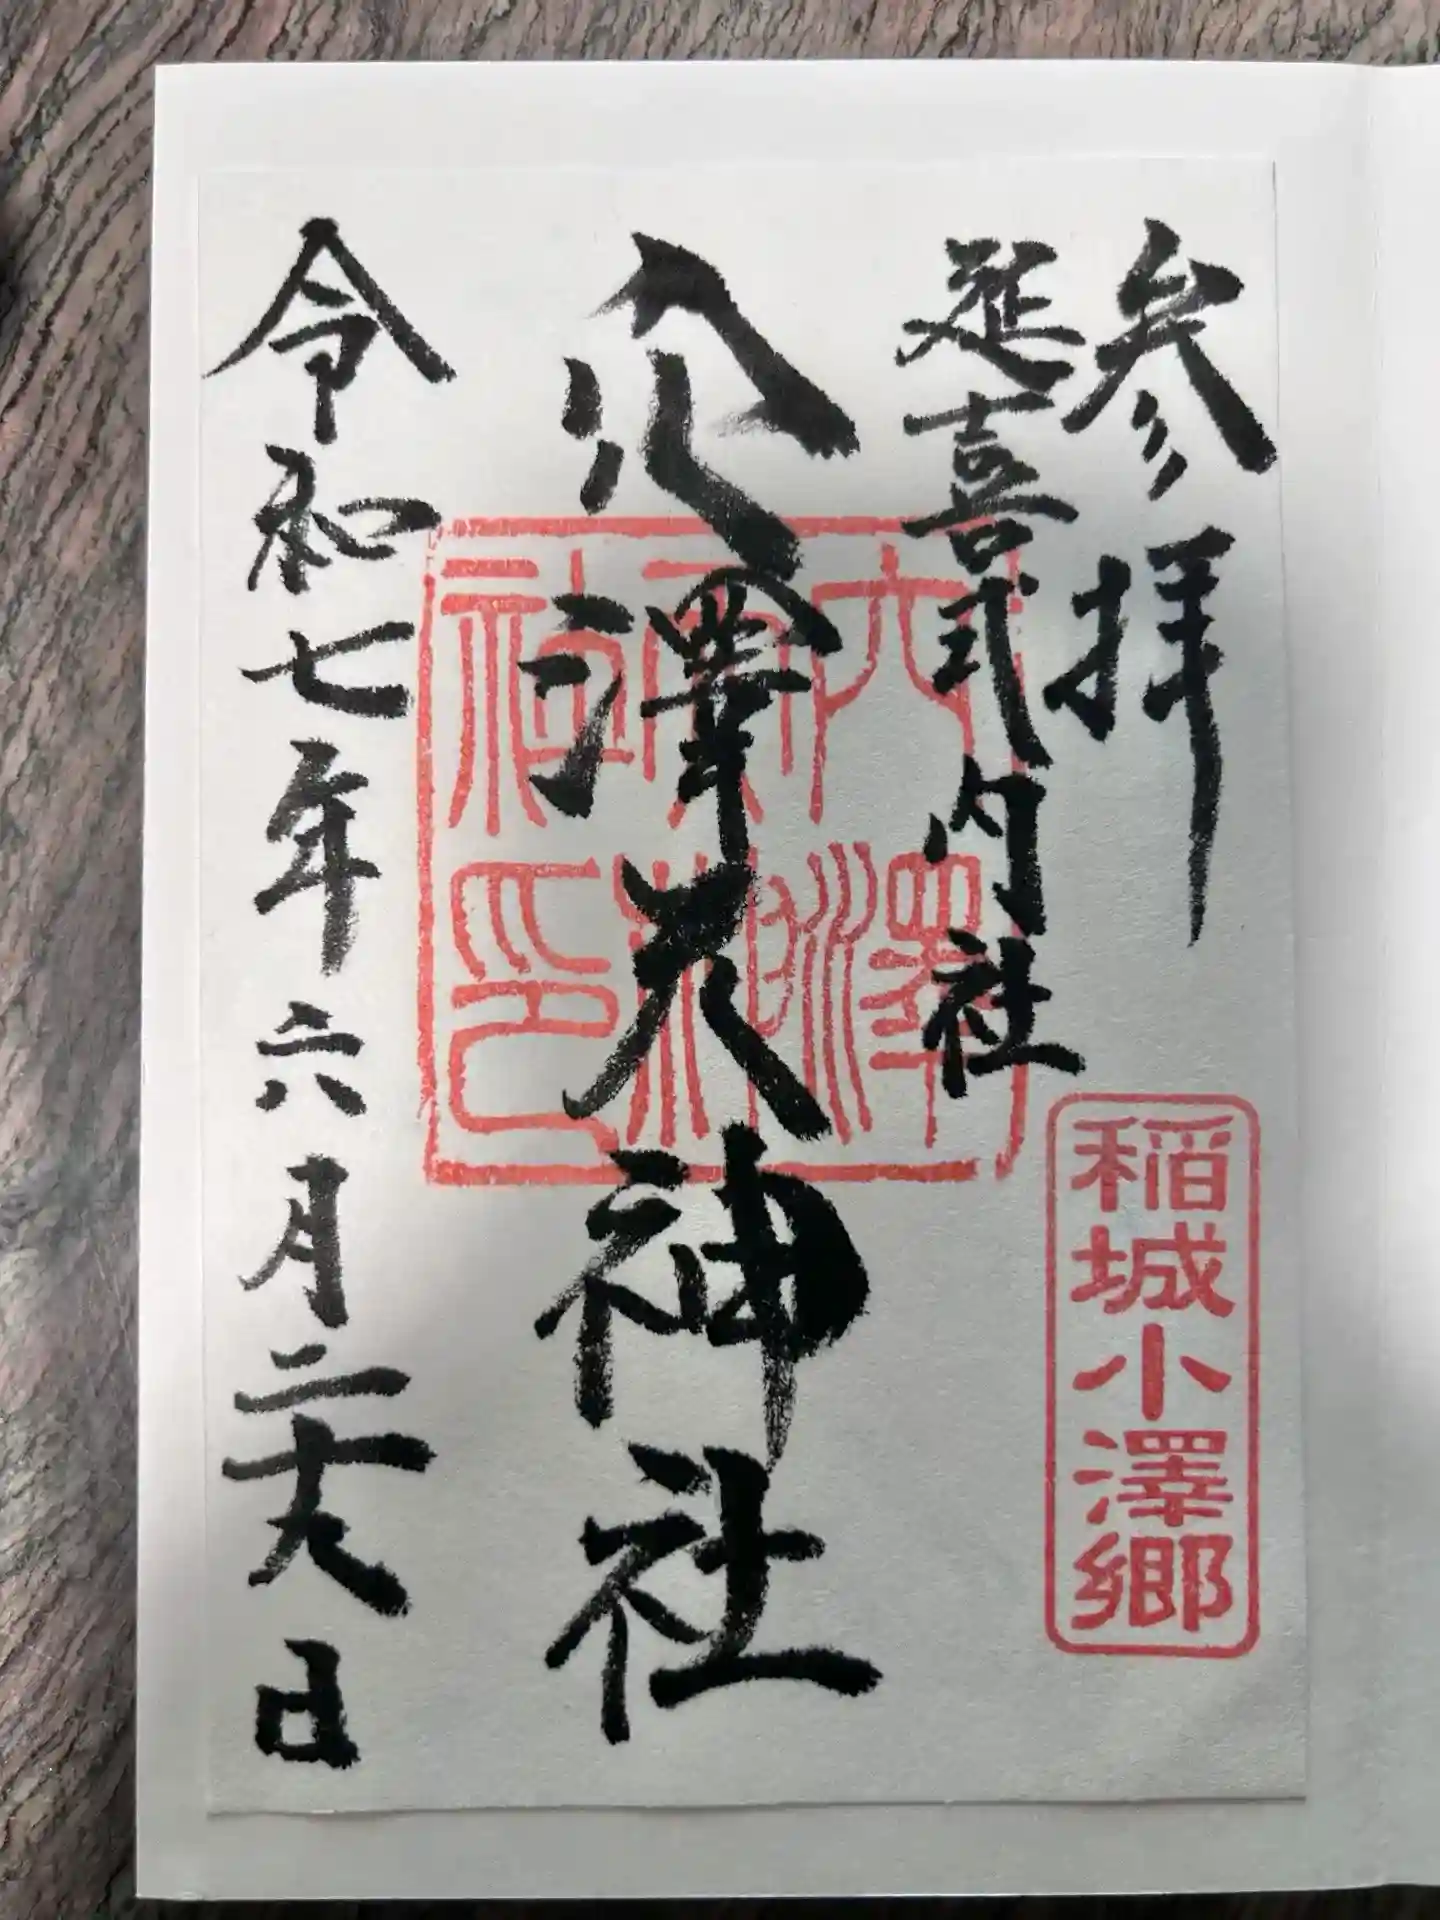 参拝
延喜式内社
稲城小澤郷
穴澤天神社
穴澤
天神
社印
令和七年六月二十八日